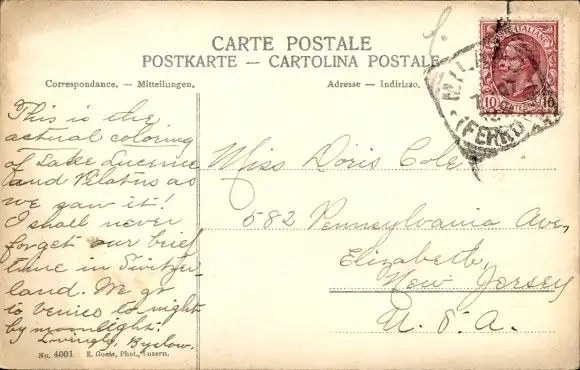 CARTE POSTALE
POSTKARTE — CARTOLINA POSTALE
Correspondance. — Mitteilungen.
Adresse — Indirizzo.
This is the
actual coloring
of Lake Lucerne
and Pilatus as
we saw it!
I shall never
forget our brief
time in Switzer-
land. We go
to Venice to-night
by moonlight.
Lovingly,
Miss Doris Cole
582 Pennsylvania Ave,
Elizabeth,
New Jersey
U. S. A.
ITALIANE
10 CENTESIMI 10
MILA
(FERRO
No. 4001 E. Goetz, Phot., Luzern.